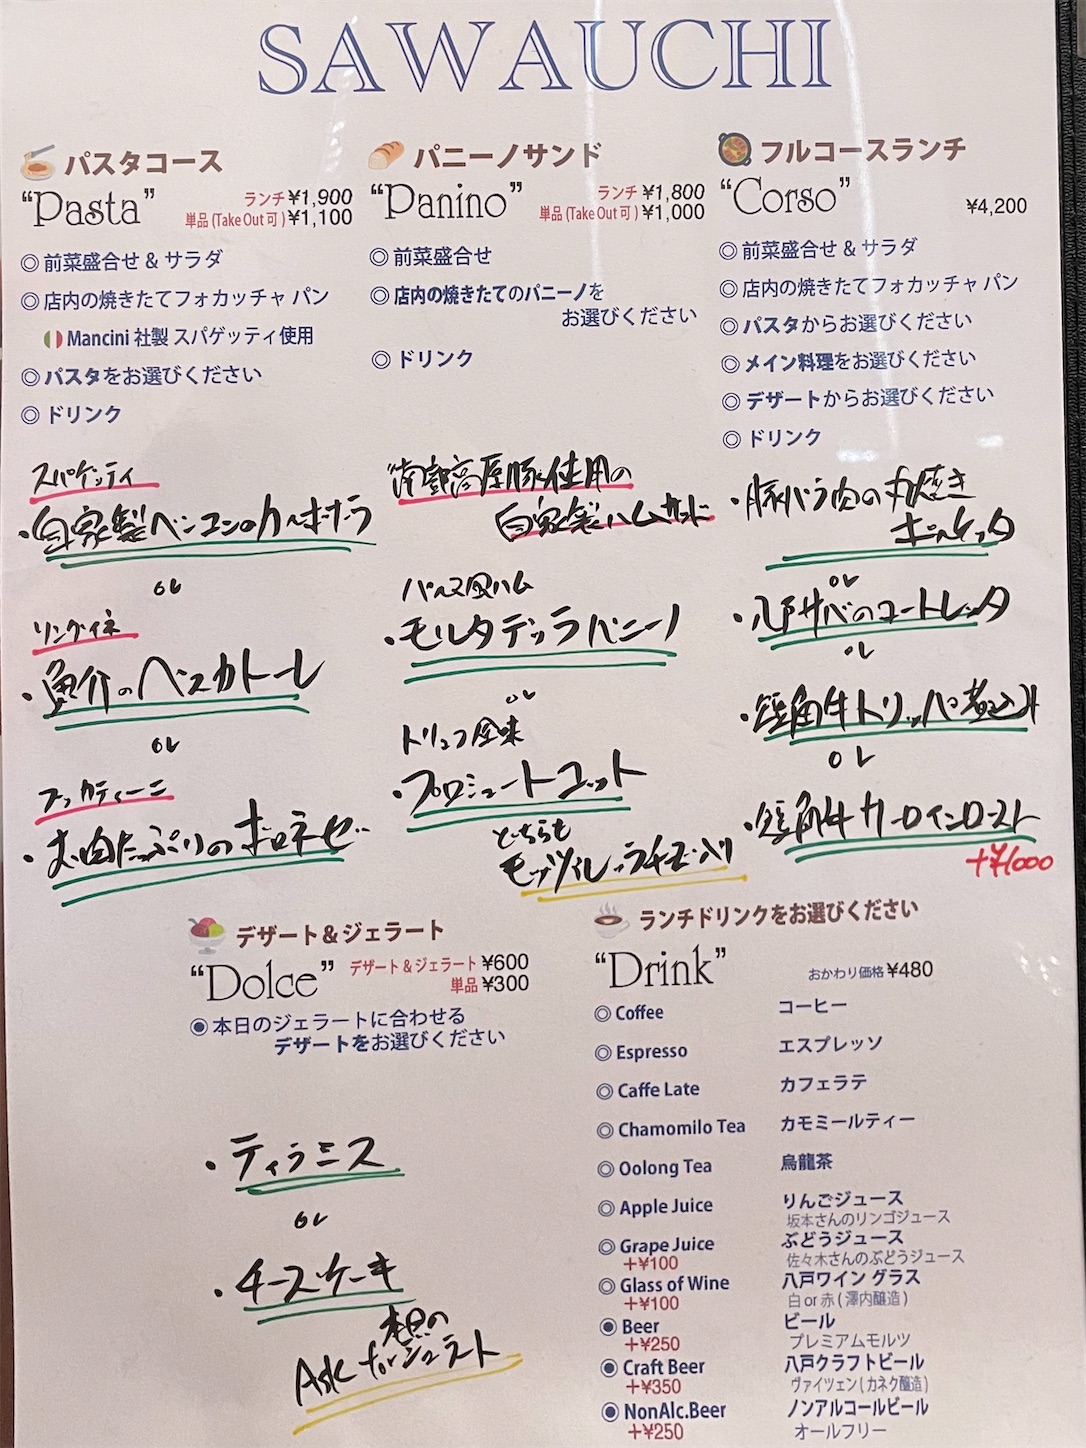 SAWAUCHI
パスタコース
"Pasta"
ランチ ¥1,900
単品 (Take Out 可) ¥1,100
◎ 前菜盛合せ & サラダ
◎ 店内の焼きたてフォカッチャ パン
Mancini 社製 スパゲッティ使用
◎ パスタをお選びください
◎ ドリンク
スパゲッティ
・自家製ベーコンのカルボナーラ
or
リングイネ
・魚介のペスカトーレ
or
ブッカティーニ
・お肉たっぷりのボロネーゼ
パニーノサンド
"Panino"
ランチ ¥1,800
単品 (Take Out 可) ¥1,000
◎ 前菜盛合せ
◎ 店内の焼きたてのパニーノを
お選びください
◎ ドリンク
使用の
自家製ハムサンド
パルマ風ハム
・モルタデッラパニーノ
or
トリュフ風味
・プロシュートコット
どちらも
モッツァレッラチーズ入り
フルコースランチ
"Corso"
¥4,200
◎ 前菜盛合せ & サラダ
◎ 店内の焼きたてフォカッチャ パン
◎ パスタからお選びください
◎ メイン料理をお選びください
◎ デザートからお選びください
◎ ドリンク
・豚バラ肉の丸焼き
ポルケッタ
or
・八戸サバのコートレッタ
or
・短角牛トリッパ煮込み
or
・短角牛サーロインロースト
+¥1000
デザート&ジェラート
"Dolce"
デザート&ジェラート ¥600
単品 ¥300
◉ 本日のジェラートに合わせる
デザートをお選びください
・ティラミス
or
・チーズケーキ
本日の
Ask for ジェラート
ランチドリンクをお選びください
"Drink"
おかわり価格 ¥480
◎ Coffee コーヒー
◎ Espresso エスプレッソ
◎ Caffe Late カフェラテ
◎ Chamomilo Tea カモミールティー
◎ Oolong Tea 烏龍茶
◎ Apple Juice りんごジュース
坂本さんのリンゴジュース
◎ Grape Juice ぶどうジュース
+¥100 佐々木さんのぶどうジュース
◎ Glass of Wine 八戸ワイン グラス
+¥100 白 or 赤 ( 澤内醸造 )
◉ Beer ビール
+¥250 プレミアムモルツ
◉ Craft Beer 八戸クラフトビール
+¥350 ヴァイツェン ( カネク醸造 )
◉ NonAlc.Beer ノンアルコールビール
+¥250 オールフリー